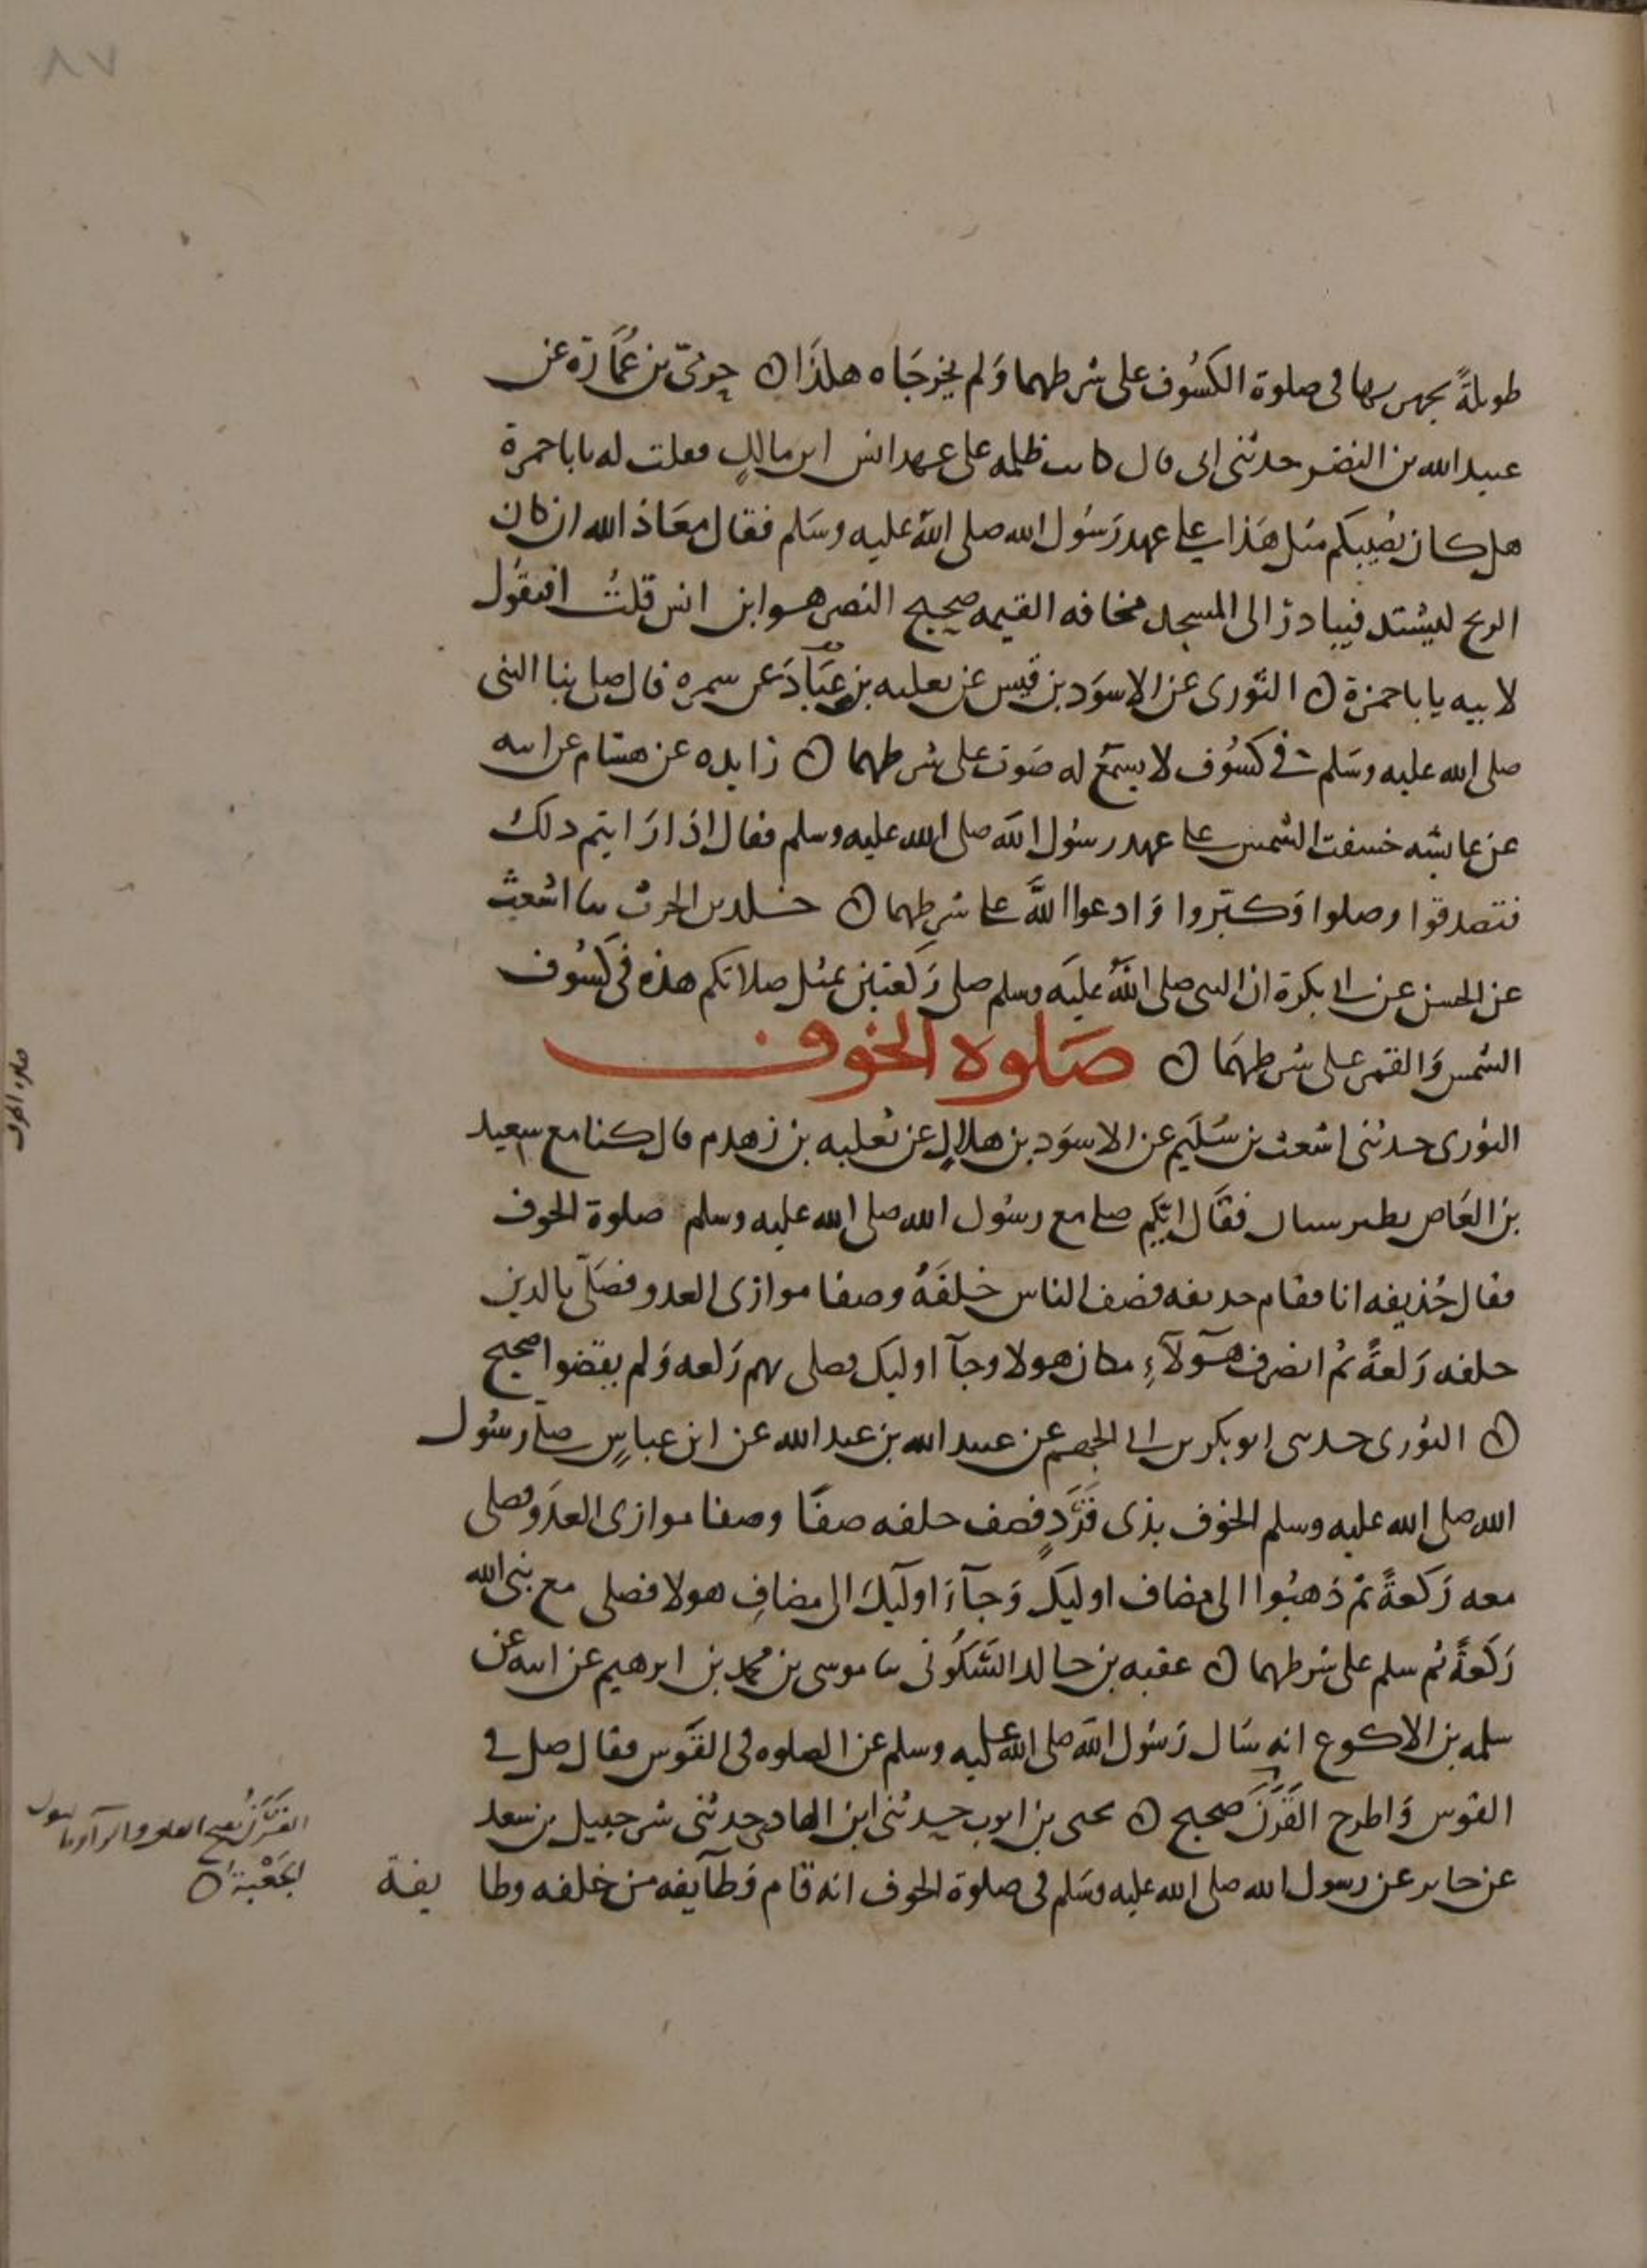 ٨٧
طويلةً يجهر بها فى صلوة الكسُوف على شرطهما وَلم يخرجَاه هكذَا ۞ حرمىّ بن عُمَارَة عن
عبيد الله بن النضر حدثنى ابى قال كانت ظلمه على عهد انس ابن مالكٍ فقلت له يابا حمزة
هل كان يُصيبكم مثل هَذا على عهد رَسُول الله صلى اللهُ عليه وسَلم فقال معَاذ الله ان كان
الريح ليشتد فيبادرُ الى المسجد مخافه القيمه صحيح النصر هو ابن انس قلتُ افيقُول
لابيه يابا حمزة ۞ الثّورى عن الاسوَد بن قيس عن ثعلبه بن عبَّاد عن سمره قال صلى بنا النبى
صلى الله عليه وسَلم فى كسُوف لا يسمَع له صَوت على شرطهما ۞ زايده عن هشام عن ابيه
عن عايشه خسفت الشمس على عهد رسُول الله صلى الله عليه وسلم فقال اذا رَايتم ذلك
فتصدقوا وصلوا وَكبّروا وَادعوا اللهَ على شرطهما ۞ خلد بن الحرث ثنا اشعث
عن الحسن عن ابى بكرة ان النبى صلى اللهُ عليَه وسلم صلى رَكعتين بمثل صلاتكم هذه فى كسُوف
الشمس وَالقمر على شرطهمَا ۞ صَلوه الخوف
الثورى حدثنى اشعث بن سُلَيم عن الاسوَد بن هلالٍ عن ثعلبه بن زهدم قال كنا مع سعيد
بن العَاص بطبرستان فقَال ايّكم صلى مع رسُول الله صلى الله عليه وسلم صلوة الخوف
فقال حُذيفه انا فقام حذيفه فصف الناس خلفَهُ وصفا موازى العدو فصَلّى بالذين
خلفه رَكعةً ثم انصرف هَؤلآءِ مكان هولا وجآ اوليك فصلى بهم رَكعه وَلم يقضوا صحيح
۞ الثورى حدثنى ابو بكر بن ابى الجهم عن عبيد الله بن عبد الله عن ابن عباسٍ صلى رسُول
الله صلى الله عليه وسلم الخوف بذى قَرَدٍ فصف خلفه صفًا وصفا موازى العدَو فصلى
معه رَكعةً ثمّ ذهبُوا الى مصاف اوليك وَجآءَ اوليك الى مصافِ هولا فصلى مع نبى الله
رَكعَةً ثم سلم على شرطهما ۞ عقبه بن خالد السَّكُونى ثنا موسى بن محمد بن ابرهيم عن ابيه عن
سلمه بن الاكوع انه سَال رَسُول الله صلى الله عليه وسلم عن الصلوه فى القَوس فقال صل فى
القوس وَاطرح القَرَنَ صحيح ۞ يحيى بن ايوب حدثنى ابن الهاد حدثنى شرحبيل بن سعد
عن جابر عن رسول الله صلى الله عليه وسَلم فى صلوة الخوف انه قام وَطآيفه من خلفه وطا يفة
صلاه الخوف
القَرَنُ بفتح القاف والرآ
الجَعْبَة ۞